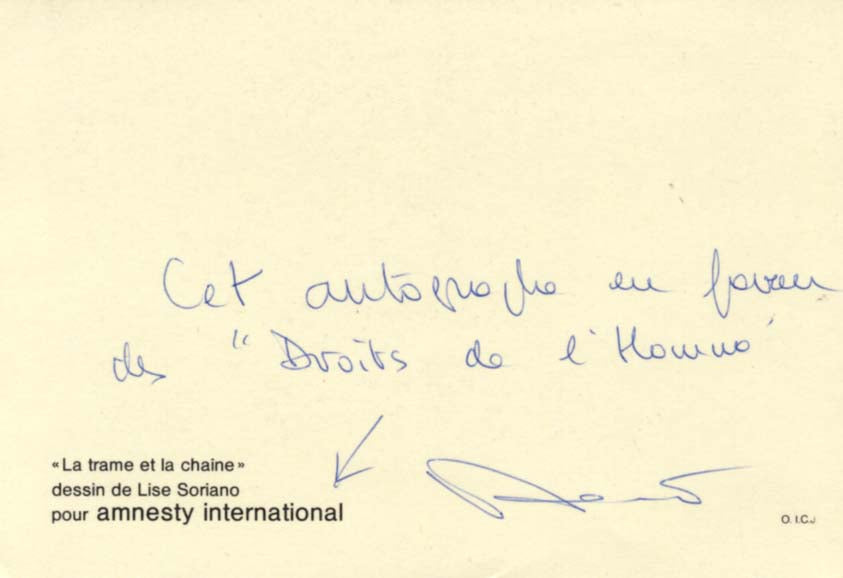 Cet autographe en faveur
des "Droits de l'Homme"
«La trame et la chaine»
dessin de Lise Soriano
pour amnesty international
O. I.C.J